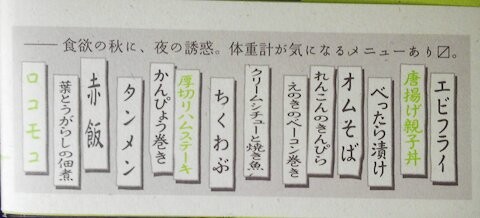 ── 食欲の秋に、夜の誘惑。体重計が気になるメニューあり〼。
エビフライ
唐揚げ親子丼
べったら漬け
オムそば
れんこんのきんぴら
えのきのベーコン巻き
クリームシチューと焼き魚
ちくわぶ
厚切りハムステーキ
かんぴょう巻き
タンメン
赤飯
葉とうがらしの佃煮
ロコモコ